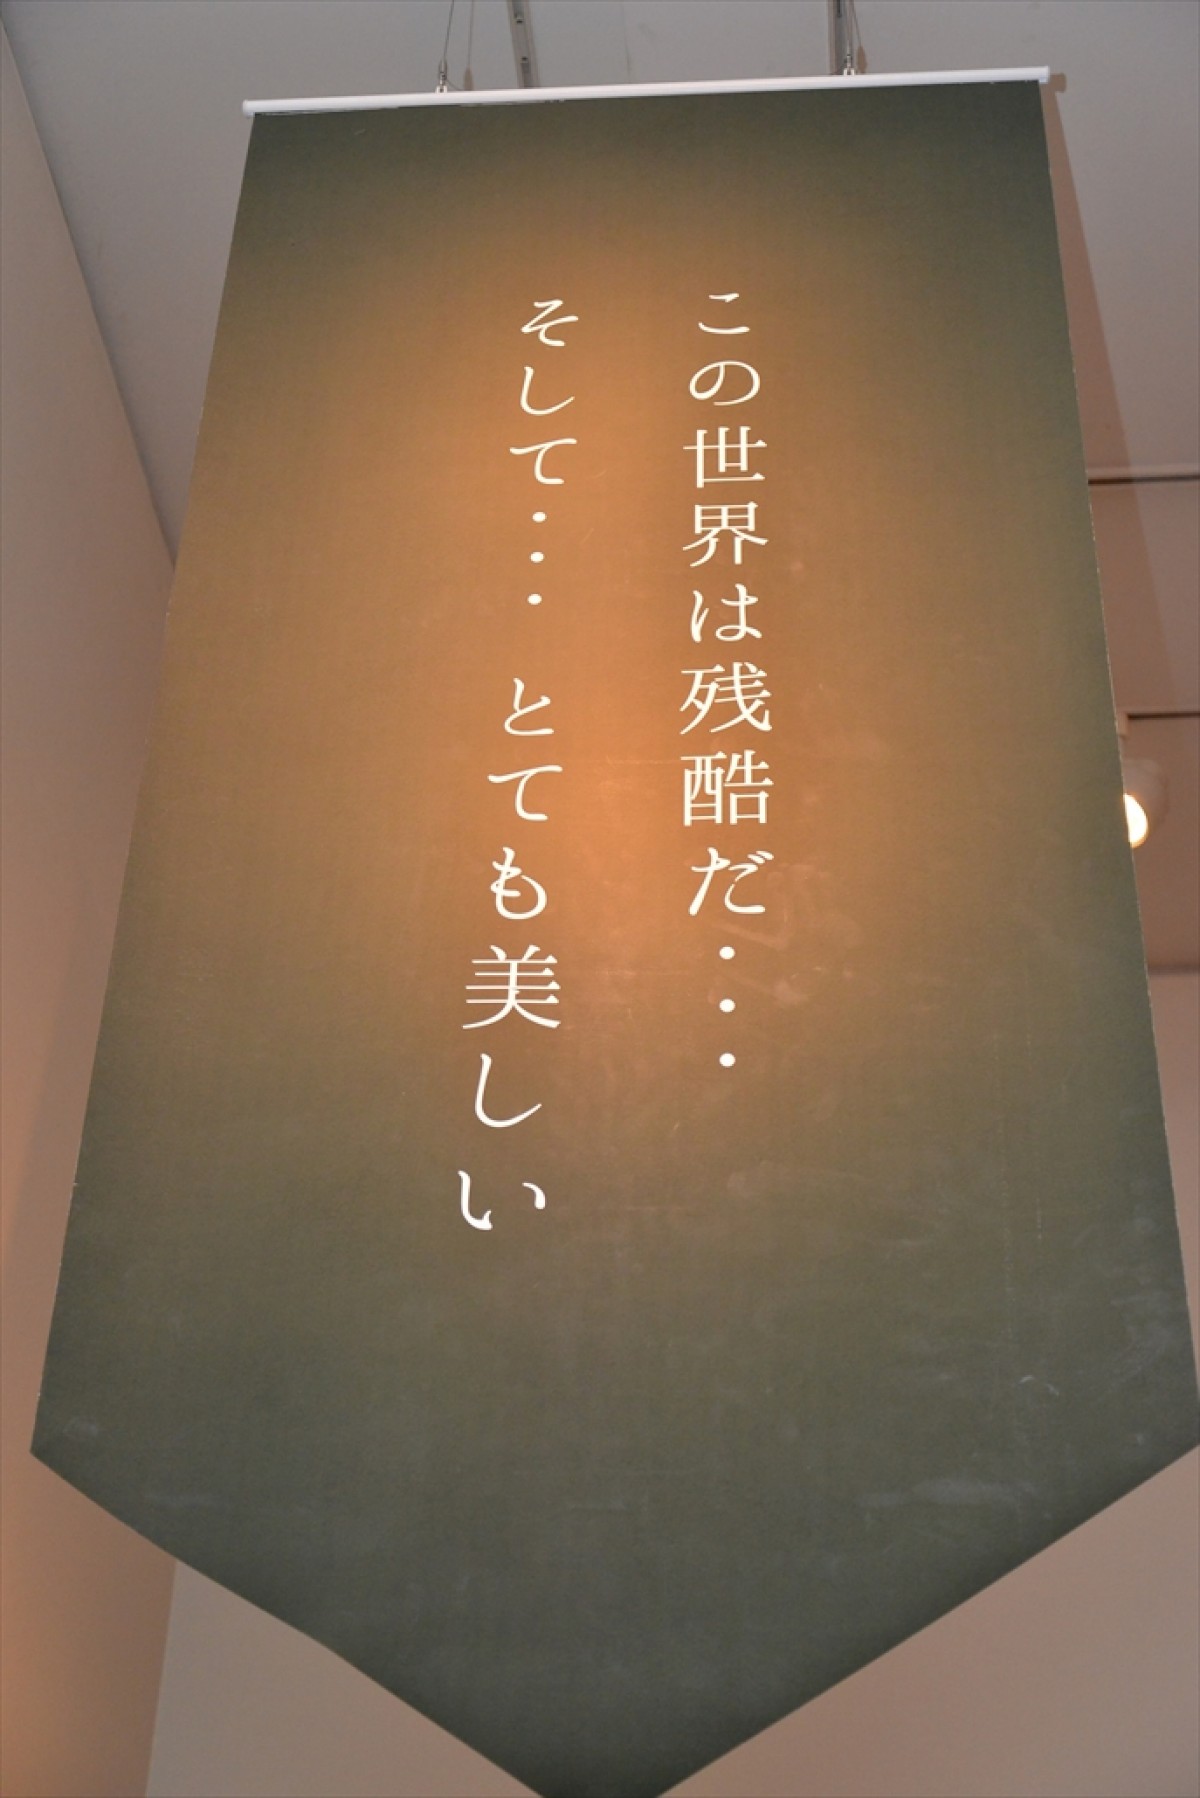 この世界は残酷だ・・・
そして・・・ とても美しい